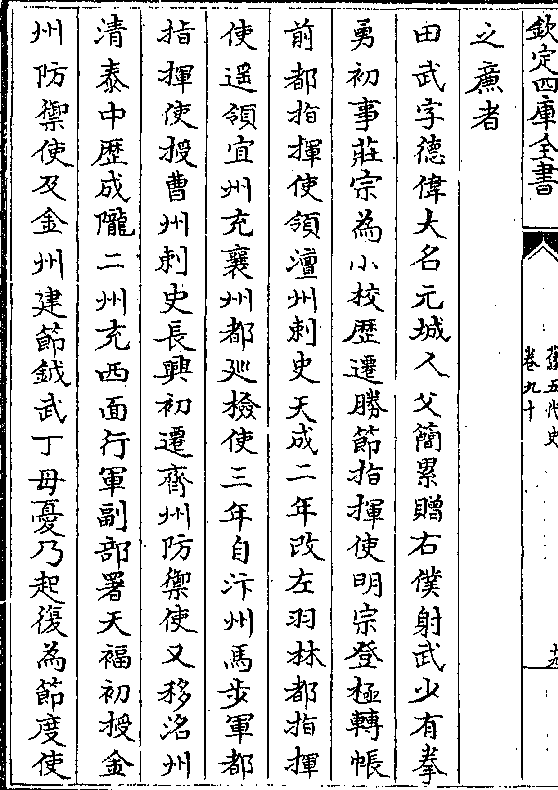 欽定四庫全書
舊五代史
卷九十
之廉者
田武字德偉大名元城人父簡累贈右僕射武少有拳
勇初事莊宗為小校歷遷勝節指揮使明宗登極轉帳
前都指揮使領澶州刺史天成二年改左羽林都指揮
使遥領宜州充襄州都廵檢使三年自汴州馬步軍都
指揮使授曹州刺史長興初遷齊州防禦使又移洺州
清泰中歴成隴二州充西面行軍副部署天福初授金
州防禦使及金州建節鉞武丁母憂乃起復為節度使